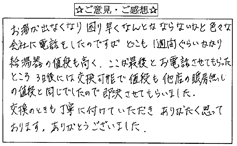 ☆ご意見・ご感想☆
お湯が出なくなり 困り早くなんとかならないかと色々な
会社に電話をしたのですが どこも1週間ぐらいかかり
給湯器の値段も高く、ここが最後とお電話させてもらった
ところ 3日後には交換可能で値段も 他店の
の値段と同じでしたので即決させてもらいました
交換のときも丁寧に付けていただき ありがたく思って
おります。ありがとうございました。